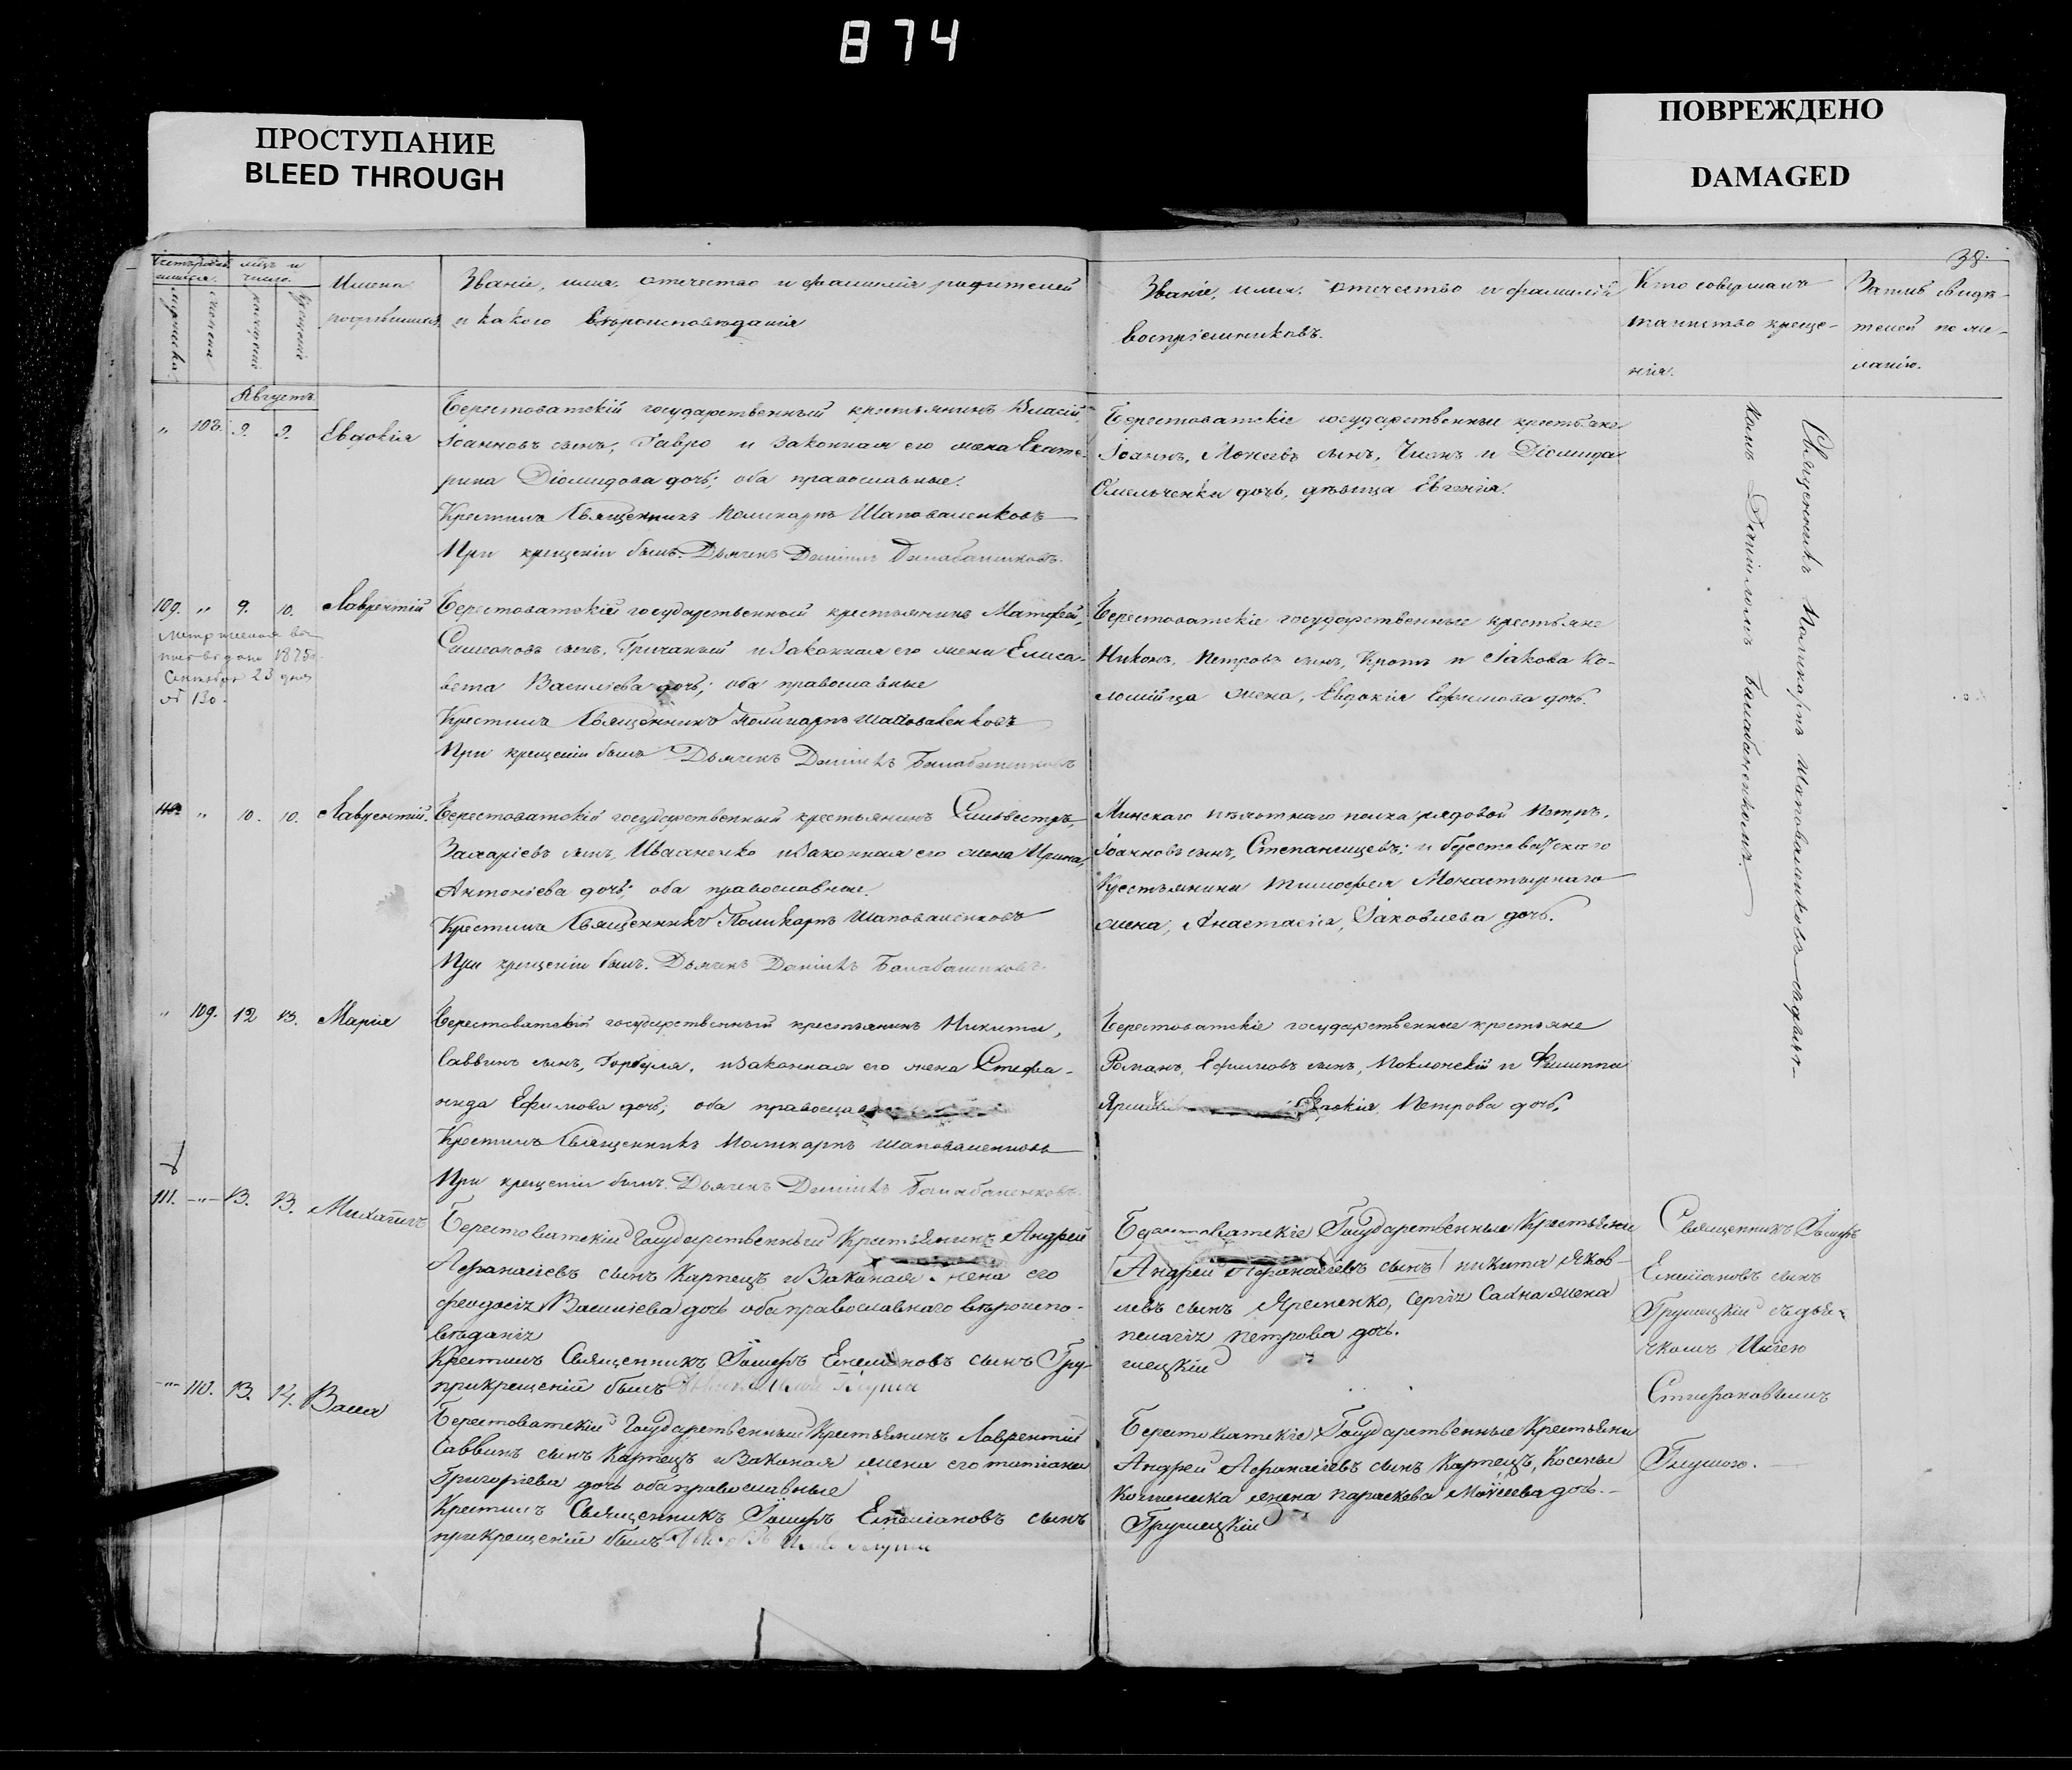 874
ПРОСТУПАНИЕ
BLEED THROUGH
ПОВРЕЖДЕНО
DAMAGED
38.
мѣсяцъ и
число.
Имена
родившихся.
Званіе, имя, отчество и фамилія родителей
и какого вѣроисповѣданія
Званіе, имя, отчество и фамилія
воспріемниковъ.
Кто совершалъ
таинство креще-
нія.
свидѣ-
телей по же-
ланію.
Августъ
" 108. 9. 9. Евдокія
Берестоватскій государственный крестьянинъ Власій,
Іоанновъ сынъ, Гавро и законная его жена Екате-
рина Діомидова дочь; оба православные.
Крестилъ Священникъ Поликарпъ Шаповаленковъ
При крещеніи былъ Дьячекъ Даніилъ Балабаненковъ.
Берестоватскіе государственные крестьяне
Іоаннъ, сынъ, и Діомида
Омельченки дочь, дѣвица Евгенія.
109. " 9. 10. Лаврентій
1875
Сентября 23 дня
№ 130.
Берестоватскій государственный крестьянинъ Матфей,
Симеоновъ сынъ, Гричаный и законная его жена Елиса-
вета Василіева дочь; оба православные
Крестилъ Священникъ Поликарпъ Шаповаленковъ
При крещеніи былъ Дьячекъ Даніилъ Балабаненковъ
Берестоватскіе государственные крестьяне
Никонъ, Петровъ сынъ, Кротъ и Іакова Ко-
ломійца жена, Евдокія Ефимова дочь.
110. " 10. 10. Лаврентій.
Берестоватскій государственный крестьянинъ Сильвестръ,
Захаріевъ сынъ, Иваненко и законная его жена Ирина,
Антоніева дочь; оба православные.
Крестилъ Священникъ Поликарпъ Шаповаленковъ
При крещеніи былъ. Дьячекъ Даніилъ Балабаненковъ.
Минскаго пѣхотнаго полка рядовой Петръ,
Іоанновъ сынъ, Степанищевъ; и берестоватскаго
крестьянина Тимофея Монастырнаго
жена, Анастасія, Іаковлева дочь.
" 109. 12 13. Марія
Берестоватскій государственный крестьянинъ Никита,
Саввинъ сынъ, Горбуля, и законная его жена Стефа-
нида Ефимова дочь; оба
Крестилъ Священникъ Поликарпъ Шаповаленковъ
При крещеніи былъ. Дьячекъ Даніилъ Балабаненковъ.
Берестоватскіе государственные крестьяне
Романъ, Ефимовъ сынъ, Поклонскій и Филиппа
Петрова дочь.
Священникъ Поликарпъ Шаповаленковъ съ дьяч-
комъ Даніиломъ Балабаненкомъ
111. " 13. 13. Михаилъ
Берестоватскій Государственный Крестьянинъ Андрей
Афанасіевъ сынъ Карпецъ и Законая жена его
феодосія Василіева дочь оба православнаго вѣроиспо-
вѣданія
Крестилъ Священникъ Іосифъ Емеліановъ сынъ Гру-
прикрещеніи былъ
Берестоватскіе Государственные Крестьяни
Андрей Афанасіевъ сынъ никита Яков-
левъ сынъ Яременко, Сергія жена
пелагія петрова дочь.
шецкій
Священникъ Іосифъ
Емеліановъ сынъ
Грушецкій съ дья-
чкомъ Иліею
Стефановымъ
Глушою.
" 110. 13. 14. Васса
Берестоватскій Государственный Крестьянинъ Лаврентій
Саввинъ сынъ Карпецъ и Законая жена его татіана
Григоріева дочь оба православные
Крестилъ Священникъ Іосифъ Емеліановъ сынъ
прикрещеніи былъ
Берестоватскіе Государственные Крестьяни
Андрей Афанасіевъ сынъ Карпецъ,
жена параскева Моисеева дочь.
Грушецкій